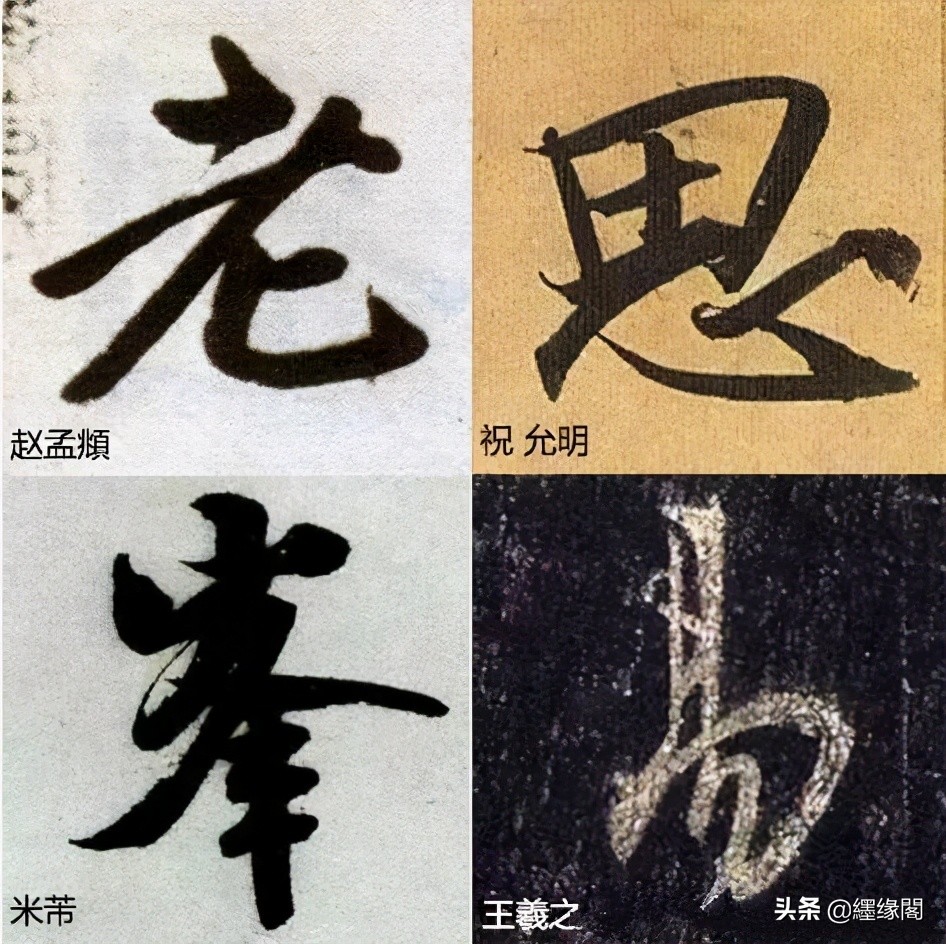 老
赵孟頫
思
祝 允明
峯
米芾
易
王羲之
头条 @纆缘閣